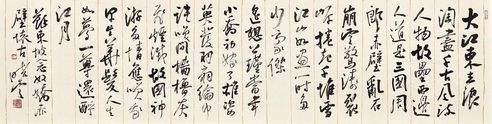 大江東去浪
淘盡千古風流
人物故壘西邊
人道是三國周
郎赤壁亂石
崩雲驚濤裂
岸捲起千堆雪
江山如畫一時多
少豪傑
遙想公瑾當年
小喬初嫁了雄姿
英發羽扇綸巾
談笑間檣櫓灰
飛煙滅故國神
遊多情應笑我
早生華髮人生
如夢一尊還酹
江月
蘇東坡念奴嬌赤
壁懷古